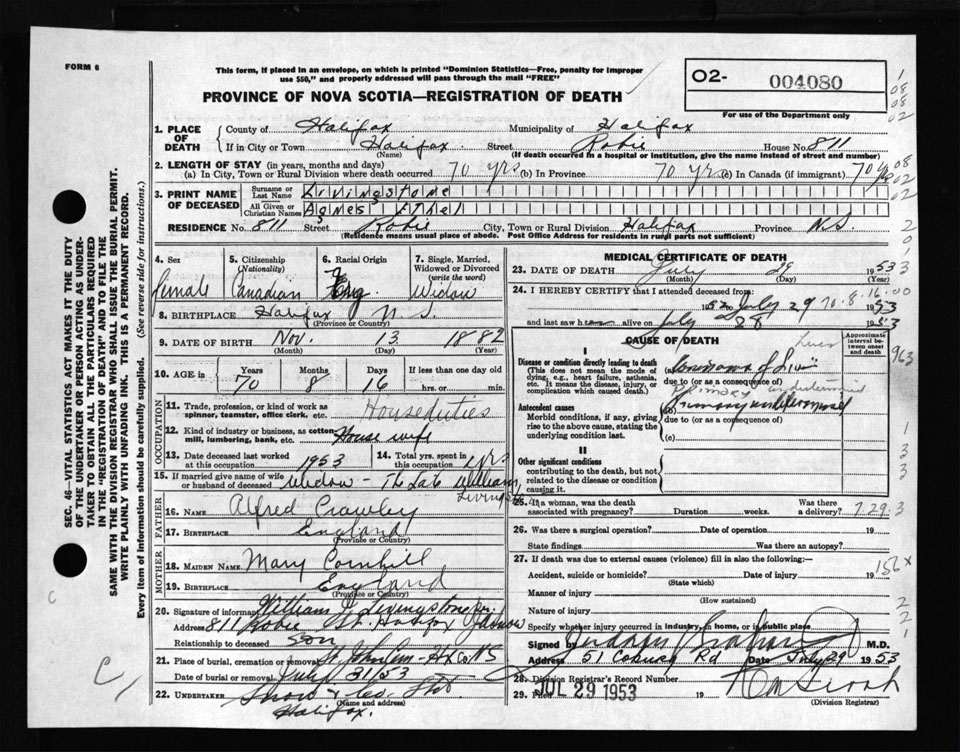 FORM 6
This form, if placed in an envelope, on which is printed "Dominion Statistics—Free, penalty for improper
use $50," and properly addressed will pass through the mail "FREE"
PROVINCE OF NOVA SCOTIA—REGISTRATION OF DEATH
O2- 004080
For use of the Department only
1. PLACE OF DEATH County of Halifax Municipality of Halifax
If in City or Town Halifax Street Robie House No. 811
(Name) (If death occurred in a hospital or institution, give the name instead of street and number)
2. LENGTH OF STAY (in years, months and days)
(a) In City, Town or Rural Division where death occurred 70 yrs (b) In Province 70 yrs (c) In Canada (if immigrant) 70 yrs
3. PRINT NAME OF DECEASED Surname or Last Name Livingstone
All Given or Christian Names Agnes Ethel
RESIDENCE No. 811 Street Robie City, Town or Rural Division Halifax Province N.S.
(Residence means usual place of abode. Post Office Address for residents in rural parts not sufficient)
4. Sex 5. Citizenship (Nationality) 6. Racial Origin 7. Single, Married, Widowed or Divorced (write the word)
Female Canadian Eng Widow
8. BIRTHPLACE Halifax N S.
(Province or Country)
9. DATE OF BIRTH Nov. 13 1882
(Month) (Day) (Year)
10. AGE in Years Months Days If less than one day old
70 8 16 hrs. or min.
OCCUPATION
11. Trade, profession, or kind of work as spinner, teamster, office clerk, etc. Houseduties
12. Kind of industry or business, as cotton mill, lumbering, bank, etc. House wife
13. Date deceased last worked at this occupation 1953 14. Total yrs. spent in this occupation yrs
15. If married give name of wife or husband of deceased Widow - The Late William Livingstone
FATHER
16. NAME Alfred Crawley
17. BIRTHPLACE England
(Province or Country)
MOTHER
18. MAIDEN NAME Mary Cornhill
19. BIRTHPLACE England
(Province or Country)
20. Signature of informant William J. Livingstone
Address 811 Robie St. Halifax
Relationship to deceased son
21. Place of burial, cremation or removal St John Cem - Hx Co NS
Date of burial or removal July 31/53
22. UNDERTAKER Snow & Co. Ltd
Halifax.
(Name and address)
MEDICAL CERTIFICATE OF DEATH
23. DATE OF DEATH July 29 1953
(Month) (Day) (Year)
24. I HEREBY CERTIFY that I attended deceased from:
1952 to July 29 1953
and last saw her alive on July 28 1953
CAUSE OF DEATH
Approximate interval between onset and death
I
Disease or condition directly leading to death
(This does not mean the mode of dying, e.g., heart failure, asthenia, etc. It means the disease, injury, or complication which caused death.)
(a) Carcinoma of Liver
due to (or as a consequence of)
Primary undetermined
Antecedent causes
Morbid conditions, if any, giving rise to the above cause, stating the underlying condition last.
(b) Primary undetermined
due to (or as a consequence of)
(c)
II
Other significant conditions
contributing to the death, but not related to the disease or condition causing it.
25. If a woman, was the death associated with pregnancy? Duration weeks. Was there a delivery? 7.29.3
26. Was there a surgical operation? Date of operation 19
State findings Was there an autopsy?
27. If death was due to external causes (violence) fill in also the following:
Accident, suicide or homicide? Date of injury 19 156x
(State which)
Manner of injury
(How sustained)
Nature of injury
Specify whether injury occurred in industry, home, or in public place
Signed by M.D.
Address 51 Coburg Rd Date July 29 1953
28. Division Registrar's Record Number
29. Filed JUL 29 1953 19
(Division Registrar)
SEC. 46—VITAL STATISTICS ACT MAKES IT THE DUTY
OF THE UNDERTAKER OR PERSON ACTING AS UNDER-
TAKER TO OBTAIN ALL THE PARTICULARS REQUIRED
IN THE "REGISTRATION OF DEATH" AND TO FILE THE
SAME WITH THE DIVISION REGISTRAR WHO SHALL ISSUE THE BURIAL PERMIT.
WRITE PLAINLY WITH UNFADING INK. THIS IS A PERMANENT RECORD.
Every item of information should be carefully supplied. (See reverse side for instructions.)